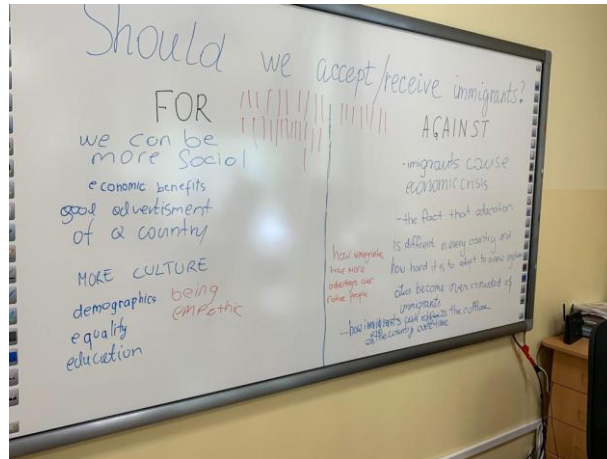 Should we accept/receive immigrants?
FOR
we can be
more social
economic benefits
good advertisment
of a country
MORE CULTURE
demographics
being
empathic
equality
education
AGAINST
-imigrants cause
economic crisis
-the fact that education
is different in every country and
how hard it is to adapt to a new system
cities become over crowded of
immigrants
-how immigrants can effects the culture
of the country overtime
how immigrants
have more
advantages over
native people